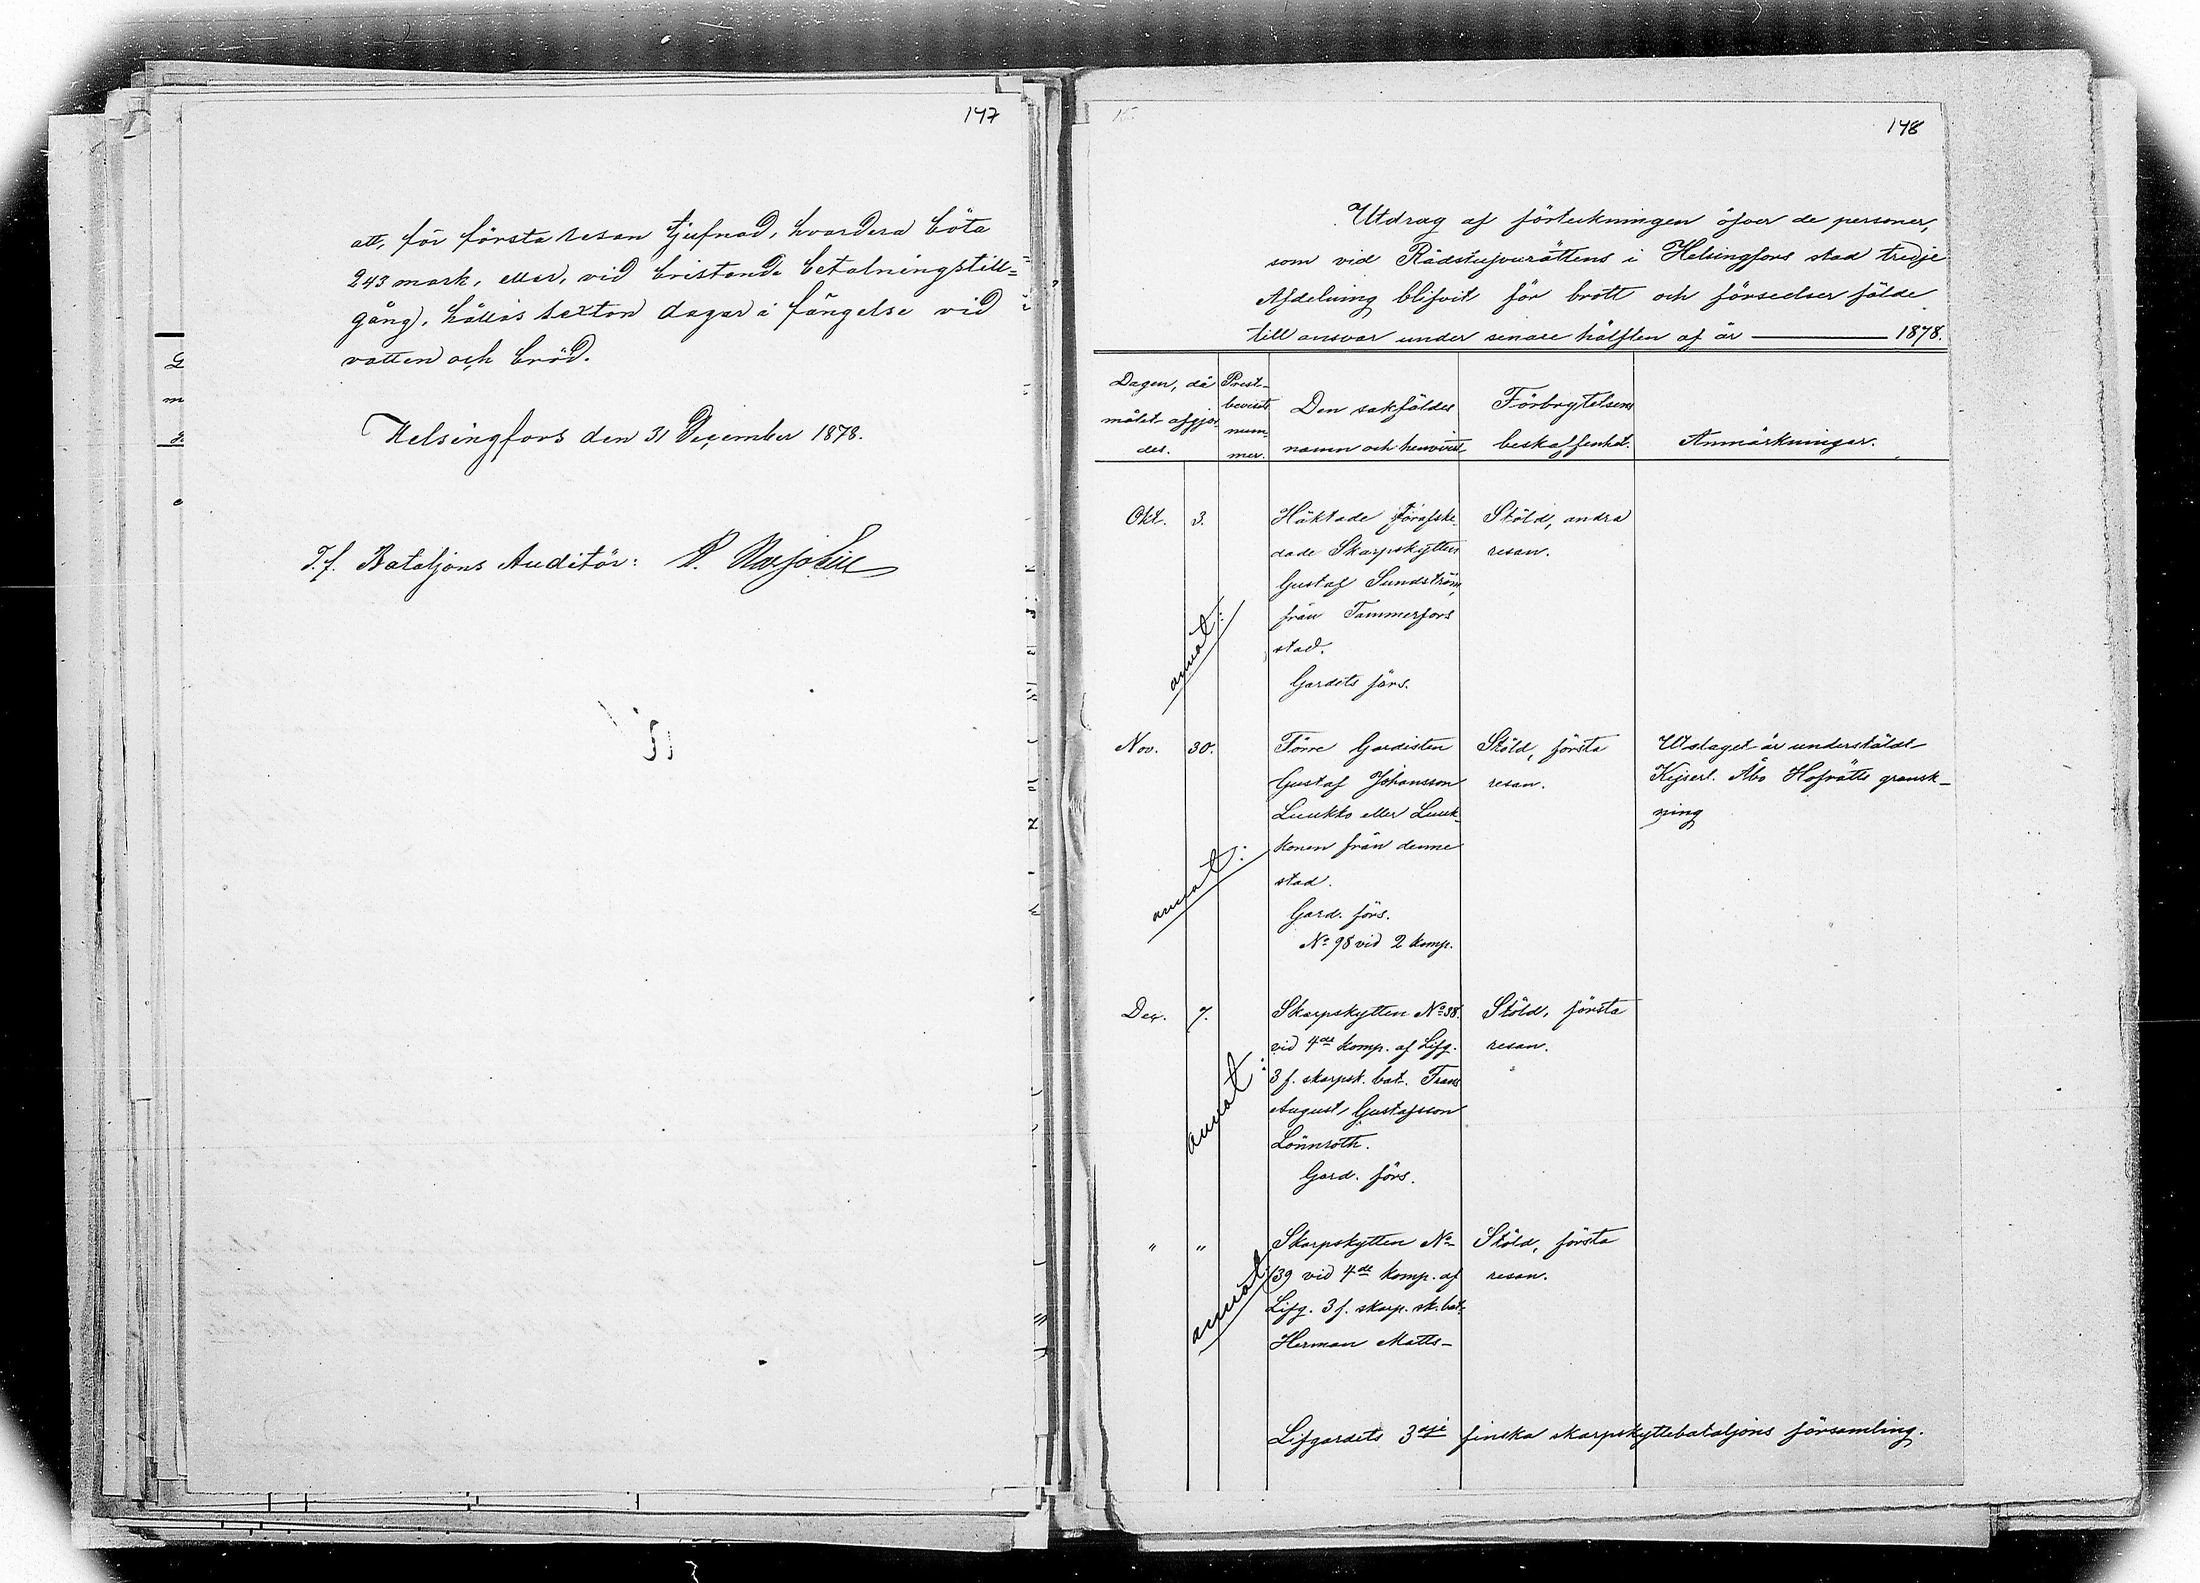 147
att, för första resan tjufnad, hvardera böta
243 mark, eller, vid bristande betalningstill=
gång, hållas sexton dagar i fängelse vid
vatten och bröd.
Helsingfors den 31 December 1878.
T.f. Bataljons Auditör:
148
Utdrag af förteckningen öfver de personer,
som vid Rådstufvurättens i Helsingfors stad tredje
Afdelning blifvit för brott och förseelser fälde
till ansvar under senare hälften af år 1878.
Dagen, då
målet afgjor-
des.
Prest-
bevisets
num-
mer.
Den sakfäldes
namn och hemvist
Förbrytelsens
beskaffenhet.
Anmärkningar.
Okt. 3.
Häktade förafske-
dade Skarpskytten
Gustaf Sundström,
från Tammerfors
stad.
Gardets förs.
Stöld, andra
resan.
annot:
Nov. 30.
Förre Gardisten
Gustaf Johansson
Luukko eller Luuk-
konen från denne
stad.
Gard. förs.
No 98 vid 2 komp.
Stöld, första
resan.
Utslaget är understäldt
Kejserl. Åbo Hofrätts gransk-
ning
annot:
Dec. 7.
Skarpskytten No 38.
vid 4de komp. af Lifg.
3 f. skarpsk. bat. Frans
August Gustafsson
Lönnroth.
Gard. förs.
Stöld, första
resan.
annot:
" "
Skarpskytten No
139 vid 4de komp. af
Lifg. 3 f. skarp. sk. bat.
Herman Matts-
Stöld, första
resan.
annot:
Lifgardets 3dje finska skarpskyttebataljons församling.